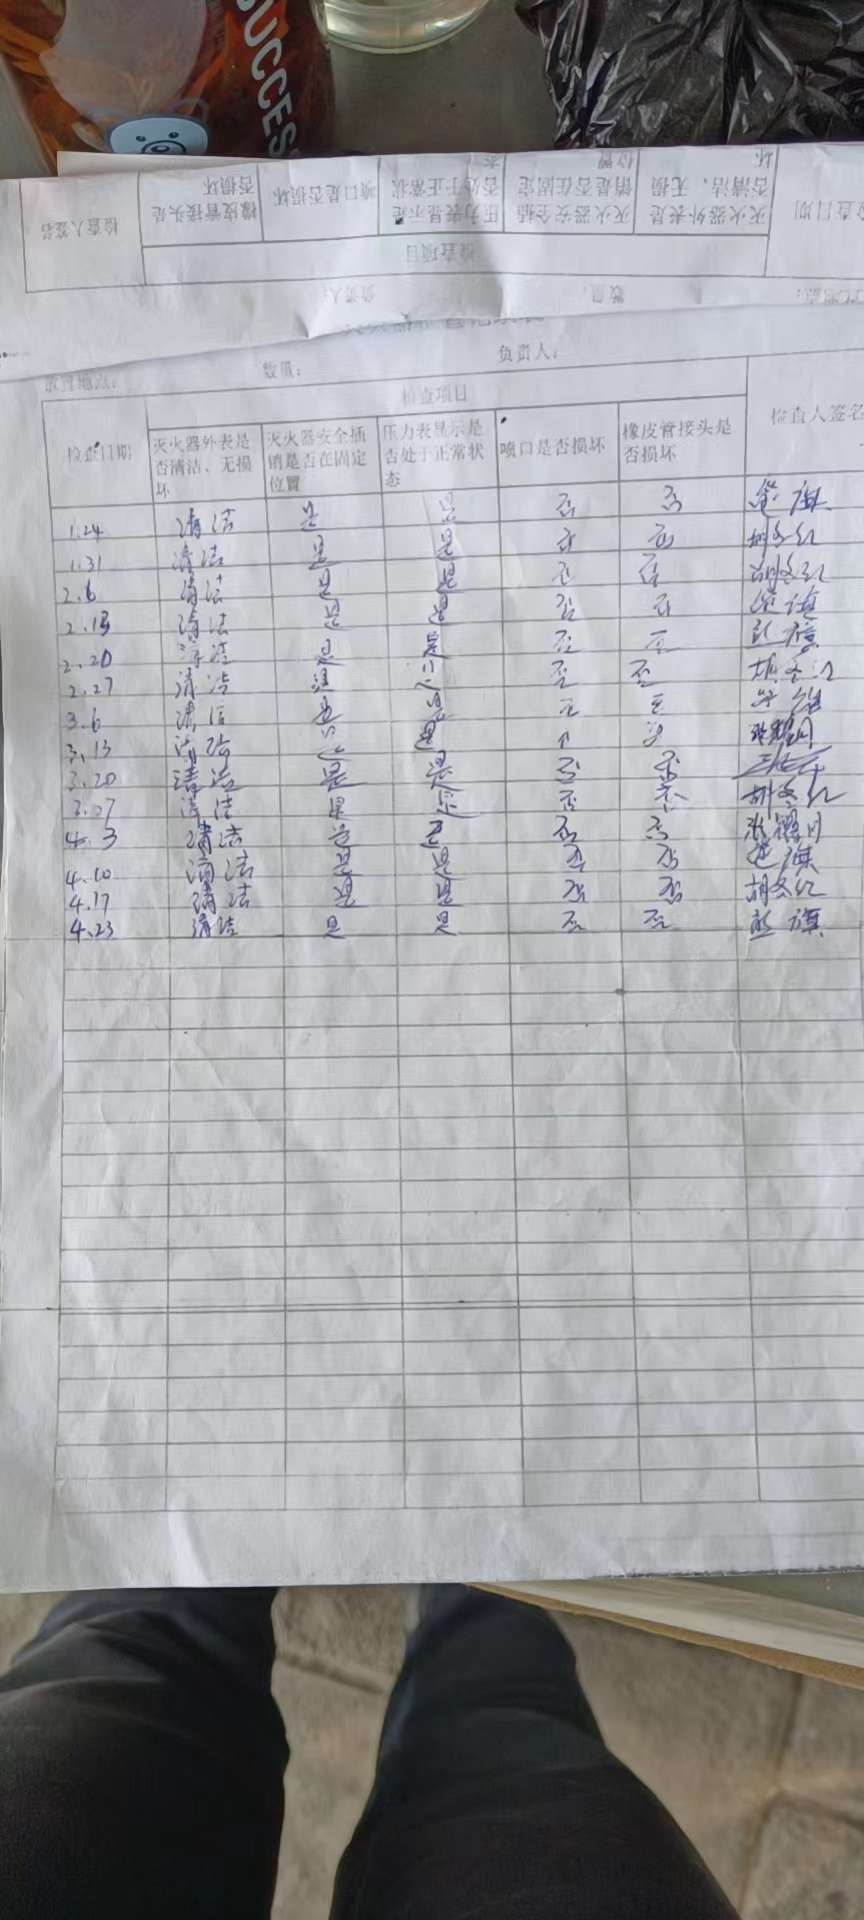 SUCCES
检查人签名 橡皮管接头是否损坏 喷口是否损坏 压力表显示是否处于正常状态 灭火器安全插销是否在固定位置 灭火器外表是否清洁、无损坏 检查日期
检查项目
负责人： 数量：
放置地点： 数量： 负责人：
检查项目
检查日期 灭火器外表是否清洁、无损坏 灭火器安全插销是否在固定位置 压力表显示是否处于正常状态 喷口是否损坏 橡皮管接头是否损坏 检查人签名
1.24 清洁 是 是 否 否
1.31 清洁 是 是 否 否 胡冬红
2.6 清洁 是 是 否 否 胡冬红
2.13 清洁 是 是 否 否
2.20 清洁 是 是 否 否
2.27 清洁 是 是 否 否 胡冬红
3.6 清洁 是 是 否 否
3.13 清洁 是 是 否 否
3.20 清洁 是 是 否 否
3.27 清洁 是 是 否 否 胡冬红
4.3 清洁 是 是 否 否
4.10 清洁 是 是 否 否
4.17 清洁 是 是 否 否 胡冬红
4.23 清洁 是 是 否 否